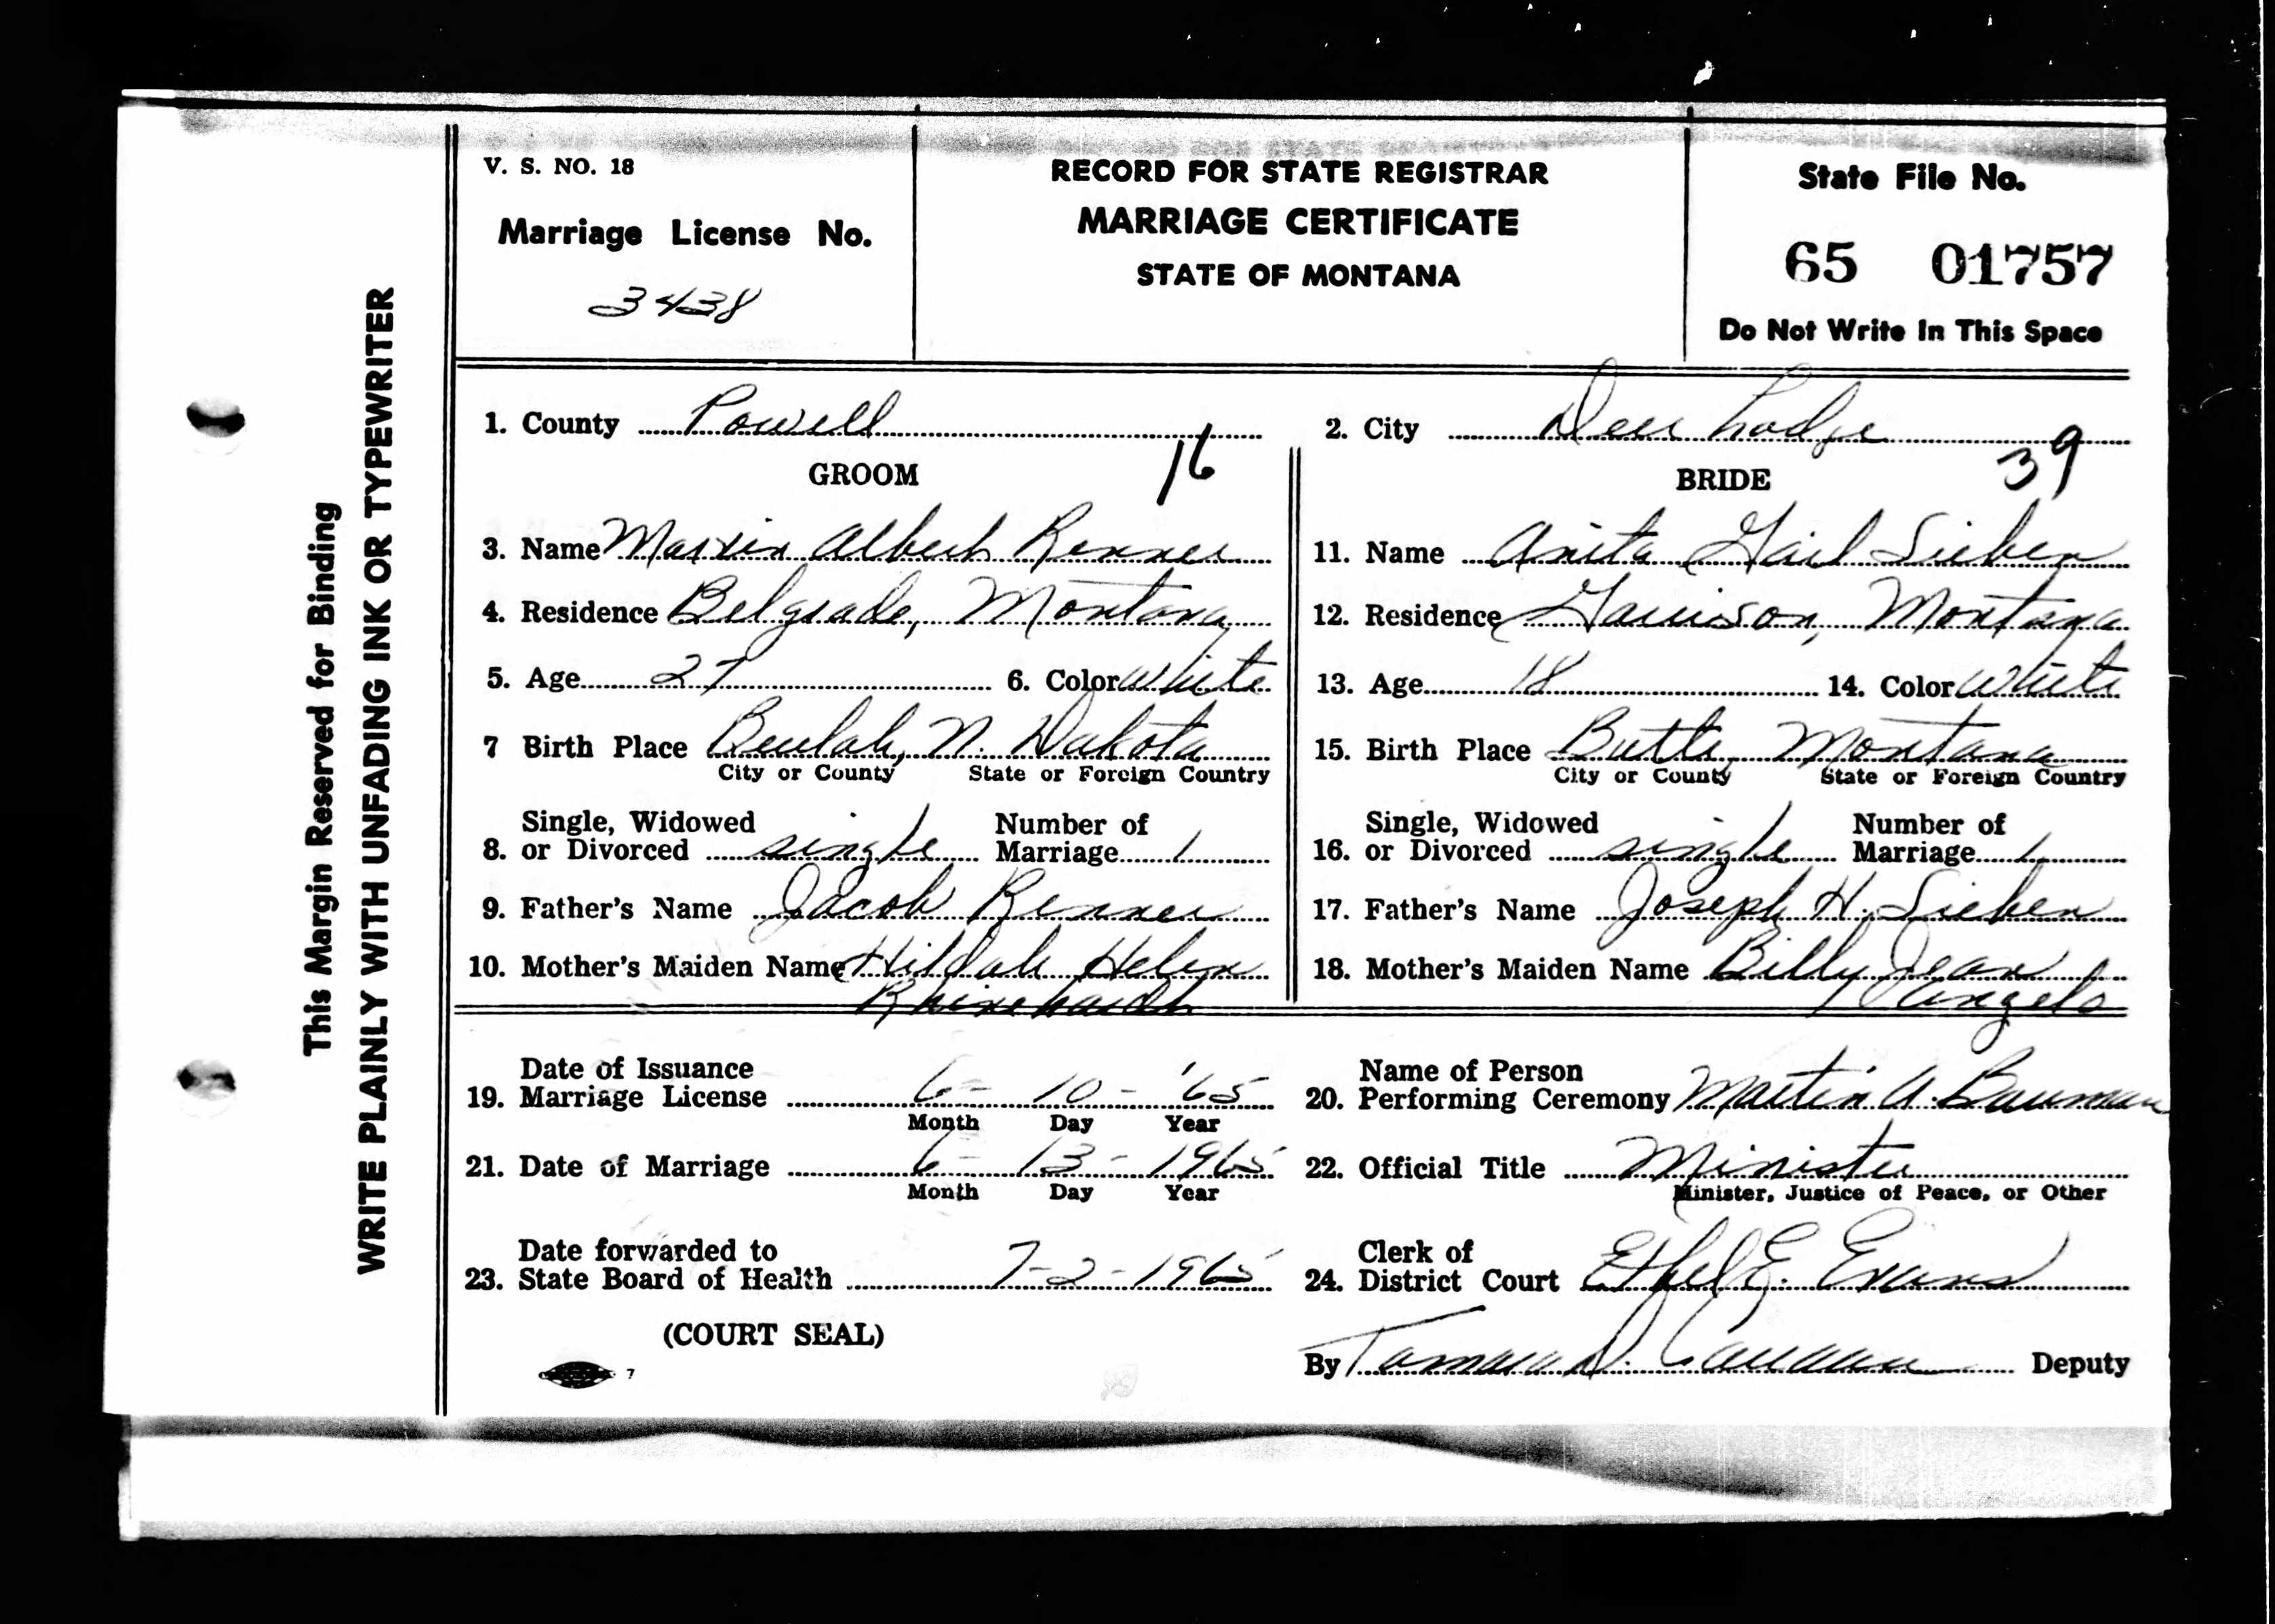 V. S. NO. 18
Marriage License No.
3438
RECORD FOR STATE REGISTRAR
MARRIAGE CERTIFICATE
STATE OF MONTANA
State File No.
65 01757
Do Not Write In This Space
This Margin Reserved for Binding
WRITE PLAINLY WITH UNFADING INK OR TYPEWRITER
1. County Powell
2. City Deer Lodge
GROOM 16
BRIDE 39
3. Name Albert Renner
11. Name Anita Gail Sieben
4. Residence Belgrade, Montana
12. Residence Garrison, Montana
5. Age 27 6. Color White
13. Age 18 14. Color White
7 Birth Place Beulah, N. Dakota
City or County State or Foreign Country
15. Birth Place Butte, Montana
City or County State or Foreign Country
Single, Widowed Number of
8. or Divorced single Marriage 1
Single, Widowed Number of
16. or Divorced single Marriage 1
9. Father's Name Jacob Renner
17. Father's Name Joseph H. Sieben
10. Mother's Maiden Name Hildah Helen
Rhinehardt
18. Mother's Maiden Name Billy Jean
Date of Issuance
19. Marriage License 6- 10- '65
Month Day Year
Name of Person
20. Performing Ceremony Martin A. Bauman
21. Date of Marriage 6- 13- 1965
Month Day Year
22. Official Title Minister
Minister, Justice of Peace, or Other
Date forwarded to
23. State Board of Health 7-2-1965
Clerk of
24. District Court Ethel E. Evans
(COURT SEAL)
7
By Tamara D. Deputy